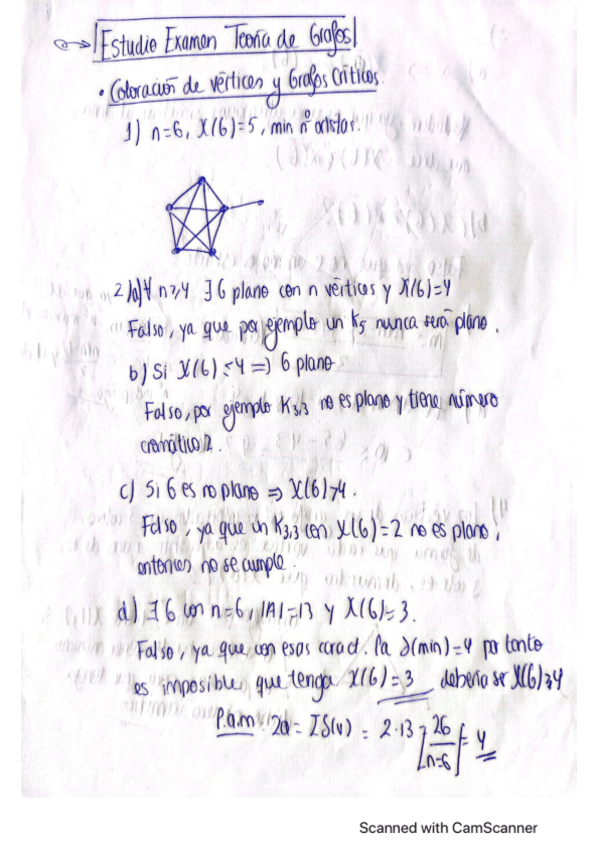 Estudio Examen Teoría de Grafos
• Coloración de vértices y Grafos Críticos.
1) n=6, X(G)=5, min nº aristas.
2) a) ∀ n≥4 ∃ G plano con n vértices y X(G)=4
Falso, ya que por ejemplo un K5 nunca será plano.
b) Si X(G)≤4 => G plano
Falso, por ejemplo K3,3 no es plano y tiene número
cromático 2.
c) Si G es no plano => X(G)>4.
Falso, ya que un K3,3 con X(G)=2 no es plano,
entonces no se cumple.
d) ∃ G con n=6, |A|=13 y X(G)=3.
Falso, ya que con esas caract. la (min)=4 por tanto
es imposible que tenga X(G)=3 debería ser X(G)≥4
P.a.m 2a = Σδ(v) = 2·13 26/n=6 = 4
Scanned with CamScanner